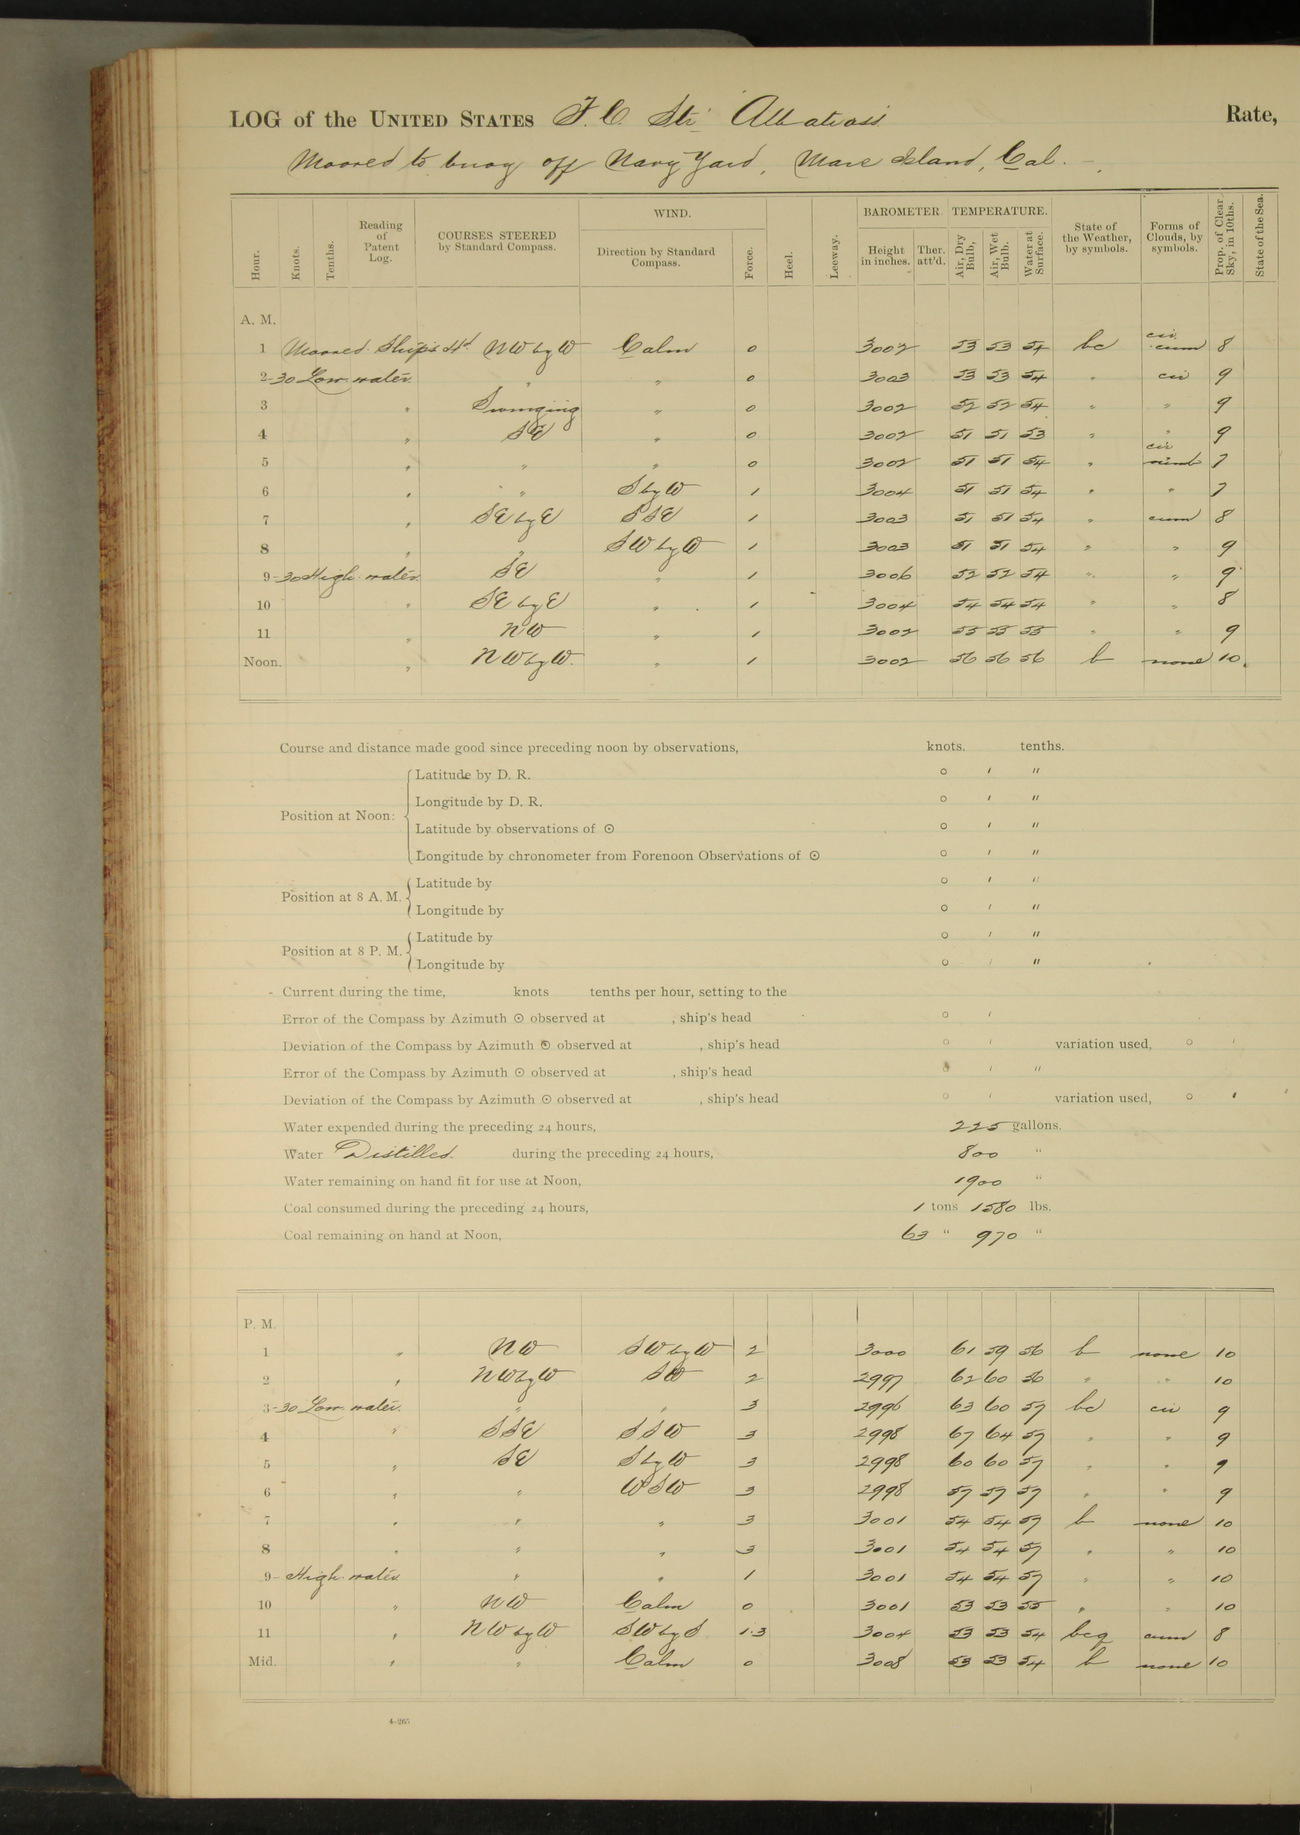 LOG of the UNITED STATES F. C. Str. Albatross Rate,
Moored to buoy off Navy Yard, Mare Island, Cal.
Hour. Knots. Tenths. Reading of Patent Log. COURSES STEERED by Standard Compass. WIND. Direction by Standard Compass. Force. Heel. Leeway. BAROMETER. Height in inches. Ther. att'd. TEMPERATURE. Air, Dry Bulb, Air, Wet Bulb. Water at Surface. State of the Weather, by symbols. Forms of Clouds, by symbols. Prop. of Clear Sky, in 10ths. State of the Sea.
A. M.
1 Moored. Ship's Hd. NW by W Calm 0 3002 53 53 54 bc cir. cum 8
2-30 Low water. " " 0 3003 53 53 54 " cir 9
3 " Swinging " 0 3002 52 52 54 " " 9
4 " SE " 0 3002 51 51 53 " " 9
5 " " " 0 3002 51 51 54 " cir nimb 7
6 " " S by W 1 3004 51 51 54 " " 7
7 " SE by E SSE 1 3003 51 51 54 " cum 8
8 " " SW by W 1 3003 51 51 54 " " 9
9-30 High water. SE " 1 3006 52 52 54 " " 9
10 " SE by E " 1 3004 54 54 54 " " 8
11 " NW " 1 3002 55 55 55 " " 9
Noon. " NW by W. " 1 3002 56 56 56 b none 10.
Course and distance made good since preceding noon by observations, knots. tenths.
Position at Noon:
Latitude by D. R. ° ' "
Longitude by D. R. ° ' "
Latitude by observations of ☉ ° ' "
Longitude by chronometer from Forenoon Observations of ☉ ° ' "
Position at 8 A. M.
Latitude by ° ' "
Longitude by ° ' "
Position at 8 P. M.
Latitude by ° ' "
Longitude by ° ' "
Current during the time, knots tenths per hour, setting to the
Error of the Compass by Azimuth ☉ observed at , ship's head ° '
Deviation of the Compass by Azimuth ☉ observed at , ship's head ° ' variation used, ° '
Error of the Compass by Azimuth ☉ observed at , ship's head ° ' "
Deviation of the Compass by Azimuth ☉ observed at , ship's head ° ' variation used, ° '
Water expended during the preceding 24 hours, 225 gallons.
Water Distilled. during the preceding 24 hours, 800 "
Water remaining on hand fit for use at Noon, 1900 "
Coal consumed during the preceding 24 hours, 1 tons 1580 lbs.
Coal remaining on hand at Noon, 63 " 970 "
P. M.
1 " NW SW by W 2 3000 61 59 56 b none 10
2 " NW by W SW 2 2997 62 60 56 " " 10
3-30 Low water. " " 3 2996 63 60 57 bc cir 9
4 " SSE SSW 3 2998 67 64 57 " " 9
5 " SE S by W 3 2998 60 60 57 " " 9
6 " " WSW 3 2998 57 57 57 " " 9
7 " " " 3 3001 54 54 57 b none 10
8 " " " 3 3001 54 54 57 " " 10
9- High water. " " 1 3001 54 54 57 " " 10
10 " NW Calm 0 3001 53 53 55 " " 10
11 " NW by W SW by S 1-3 3004 53 53 54 bcq cum 8
Mid. " " Calm 0 3008 53 53 54 b none 10
4-265